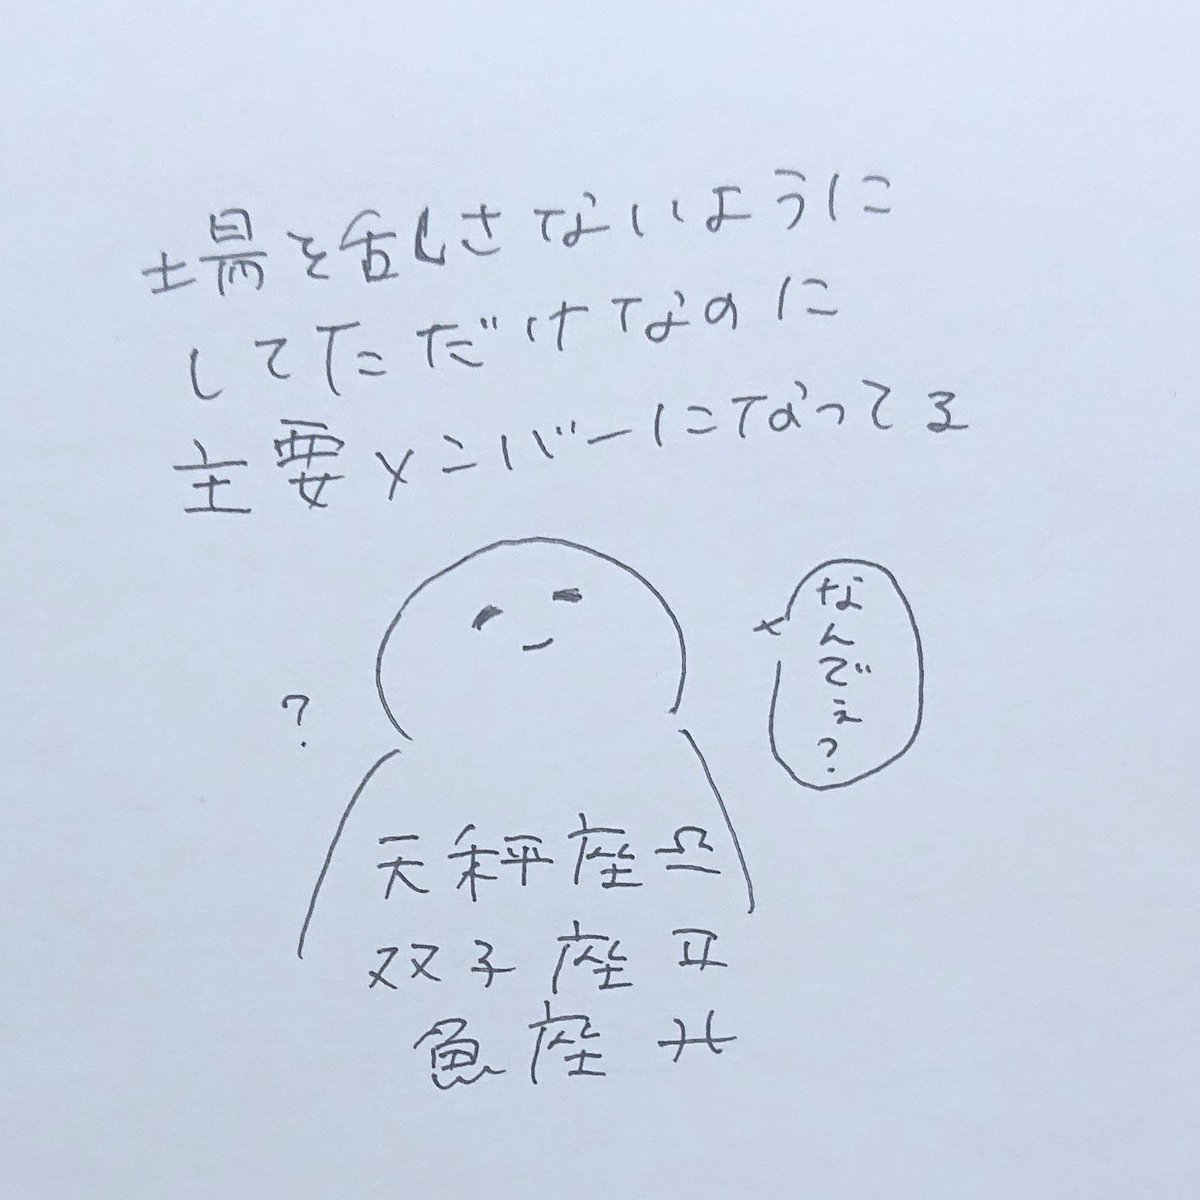 場を乱さないように
してただけなのに
主要メンバーになってる
なんでぇ?
?
天秤座♎︎
双子座♊︎
魚座♓︎